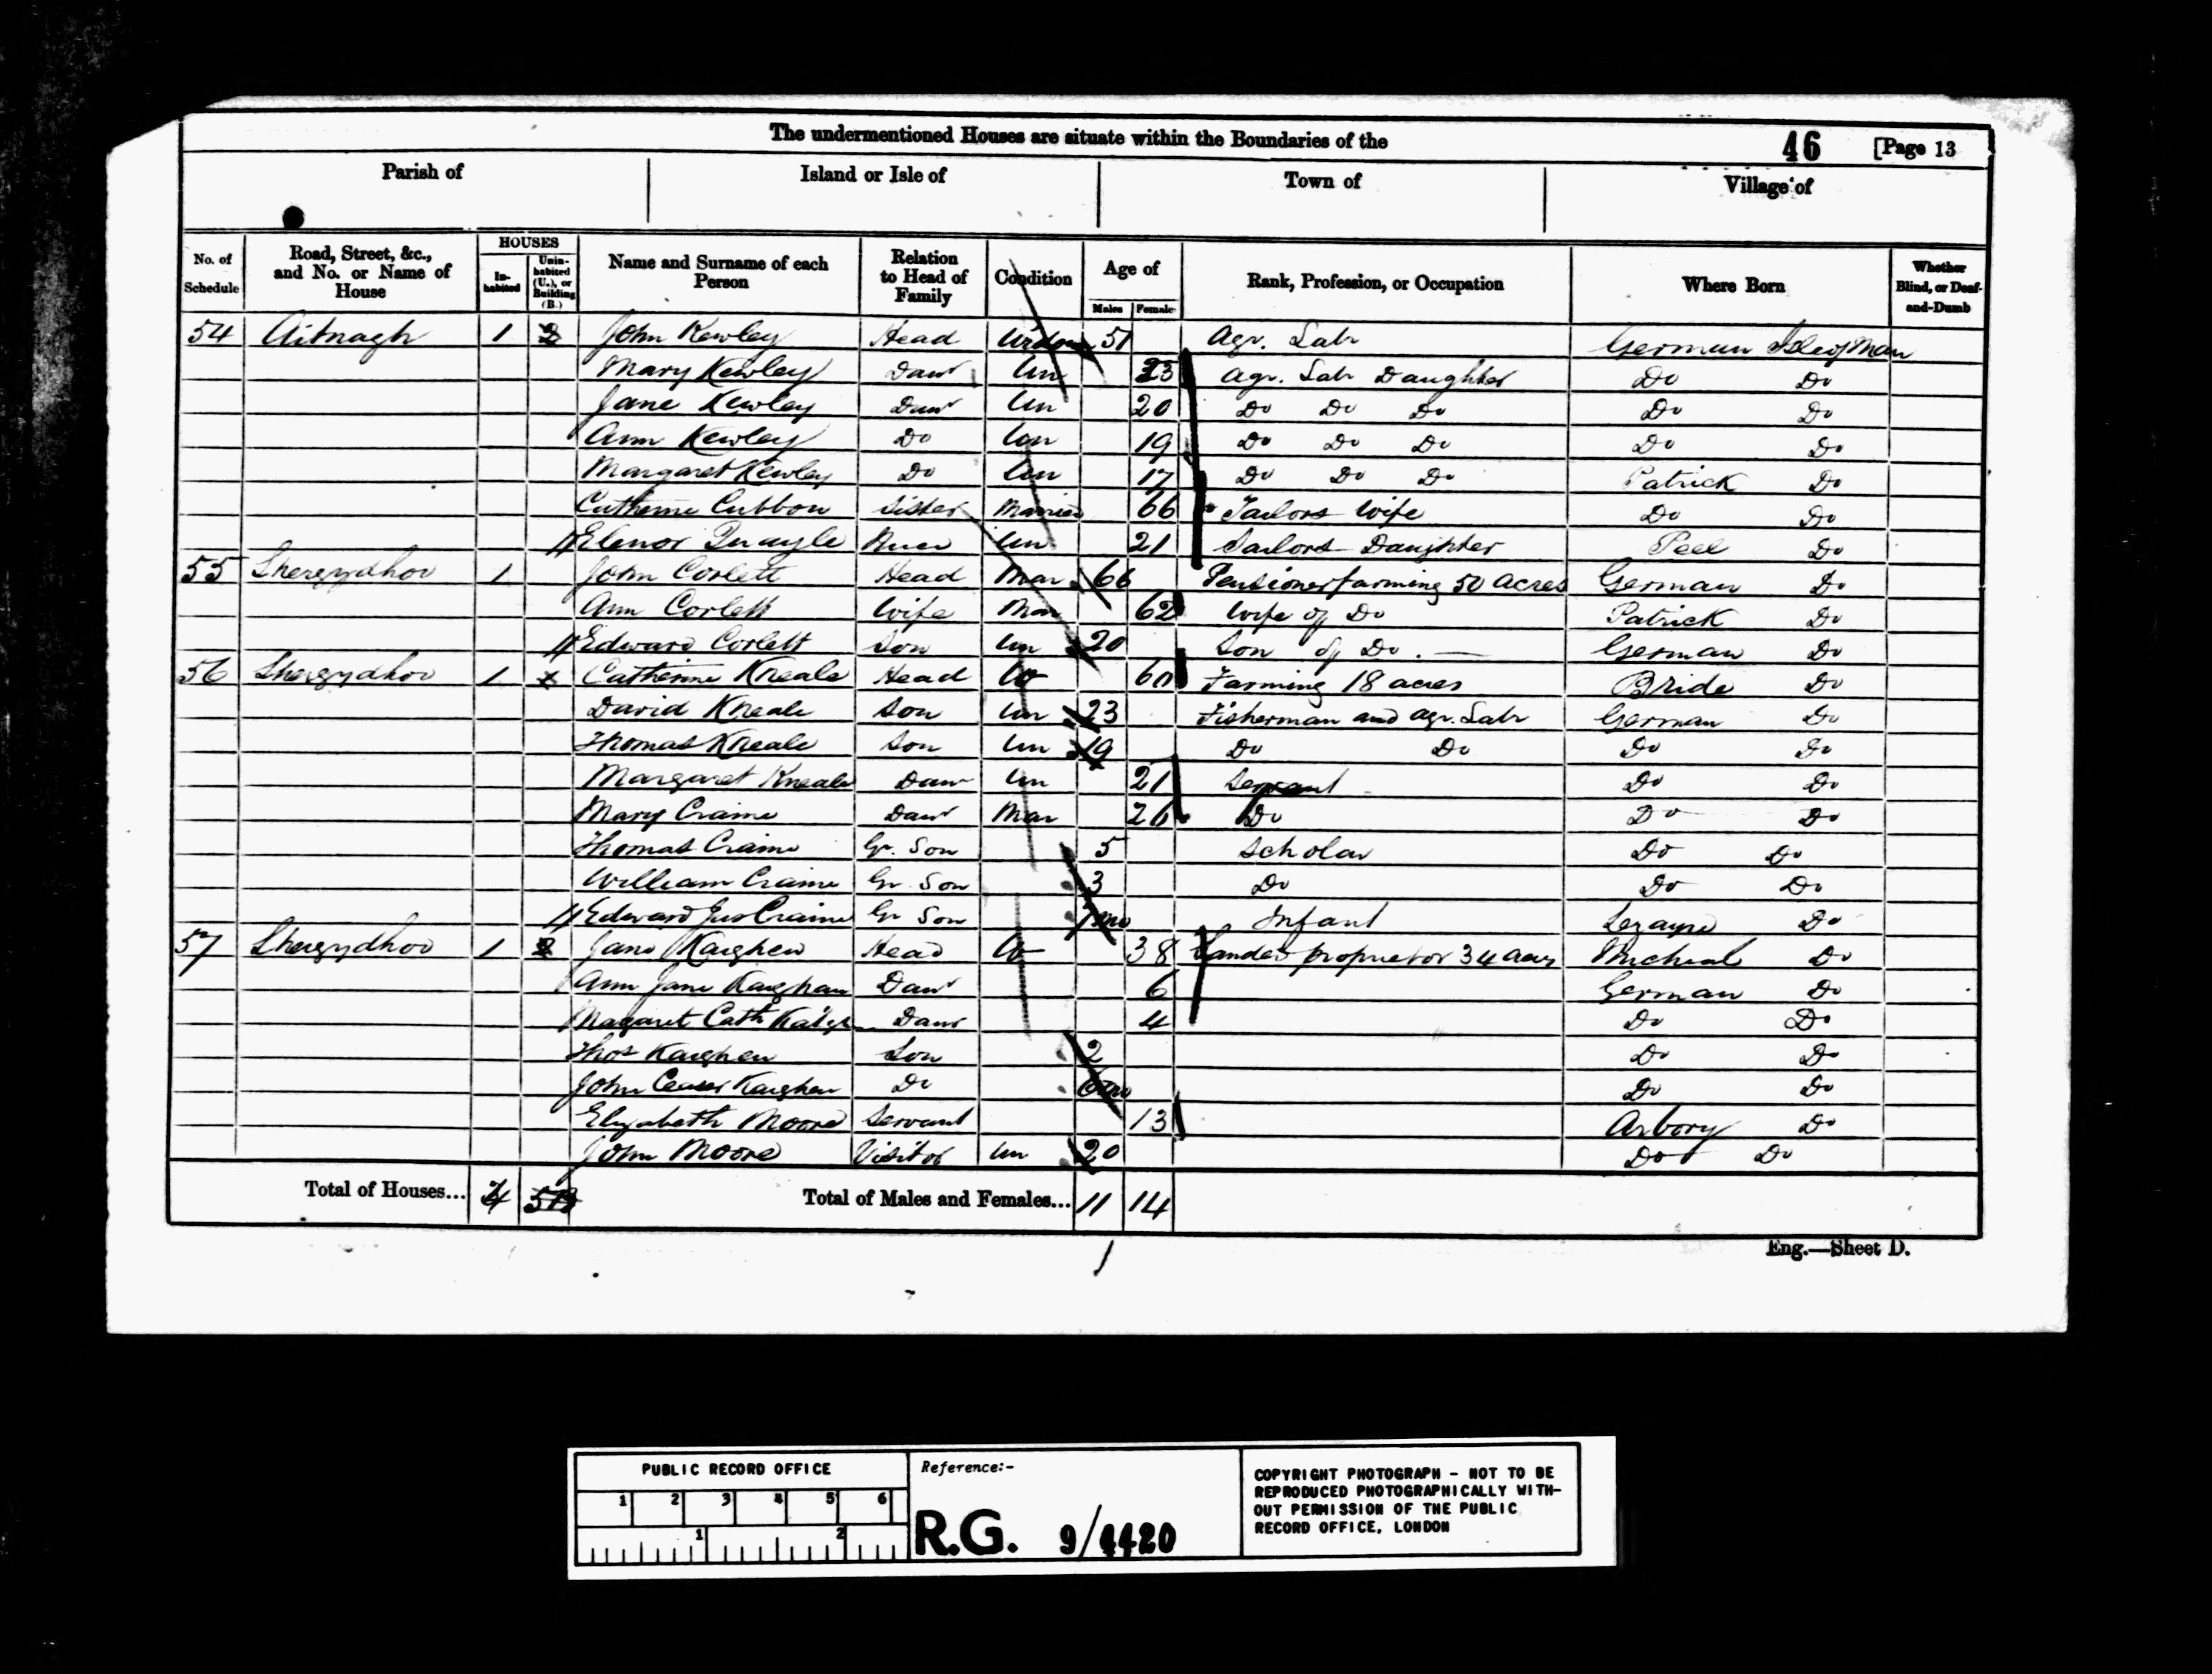 The undermentioned Houses are situate within the Boundaries of the 46 [Page 13
Parish of Island or Isle of Town of Village of
No. of Schedule Road, Street, &c., and No. or Name of House HOUSES Inhabited Uninhabited (U.), or Building (B.) Name and Surname of each Person Relation to Head of Family Condition Age of Males Females Rank, Profession, or Occupation Where Born Whether Blind, or Deaf-and-Dumb
54 Aitnagh 1 John Kewley Head Widr 51 Agr. Labr German Isle of Man
Mary Kewley Daur Un 23 Agr. Labr Daughter Do Do
Jane Kewley Daur Un 20 Do Do Do Do Do
Ann Kewley Do Un 19 Do Do Do Do Do
Margaret Kewley Do Un 17 Do Do Do Patrick Do
Catherine Cubbon Sister Married 66 Tailors Wife Do Do
Elenor Quayle Niece Un 21 Tailors Daughter Peel Do
55 Shergydhoo 1 John Corlett Head Mar 66 Pensioner farming 50 acres German Do
Ann Corlett Wife Mar 62 Wife of Do Patrick Do
Edward Corlett Son Un 20 Son of Do. German Do
56 Shergydhoo 1 Catherine Kneale Head W 60 Farming 18 acres Bride Do
David Kneale Son Un 23 Fisherman and Agr. Labr German Do
Thomas Kneale Son Un 19 Do Do Do Do
Margaret Kneale Daur Un 21 Servant Do Do
Mary Craine Daur Mar 26 Do Do Do
Thomas Craine Gr. Son 5 Scholar Do Do
William Craine Gr Son 3 Do Do Do
Edward Craine Gr Son 1mo Infant Lezayre Do
57 Shergydhoo 1 Jane Kaighen Head W 38 Landed proprietor 34 acres Micheal Do
Ann Jane Kaighen Daur 6 German Do
Magaret Cath Daur 4 Do Do
Thos Kaighen Son 2 Do Do
John Ceaser Kaighen Do 6mo Do Do
Elizabeth Moore Servant 13 Arbory Do
John Moore Visitor Un 20 Do Do
Total of Houses... 4 Total of Males and Females... 11 14
Eng.—Sheet D.
PUBLIC RECORD OFFICE
1 2 3 4 5 6
1 2
Reference:-
R.G. 9/4420
COPYRIGHT PHOTOGRAPH - NOT TO BE
REPRODUCED PHOTOGRAPHICALLY WITH-
OUT PERMISSION OF THE PUBLIC
RECORD OFFICE, LONDON